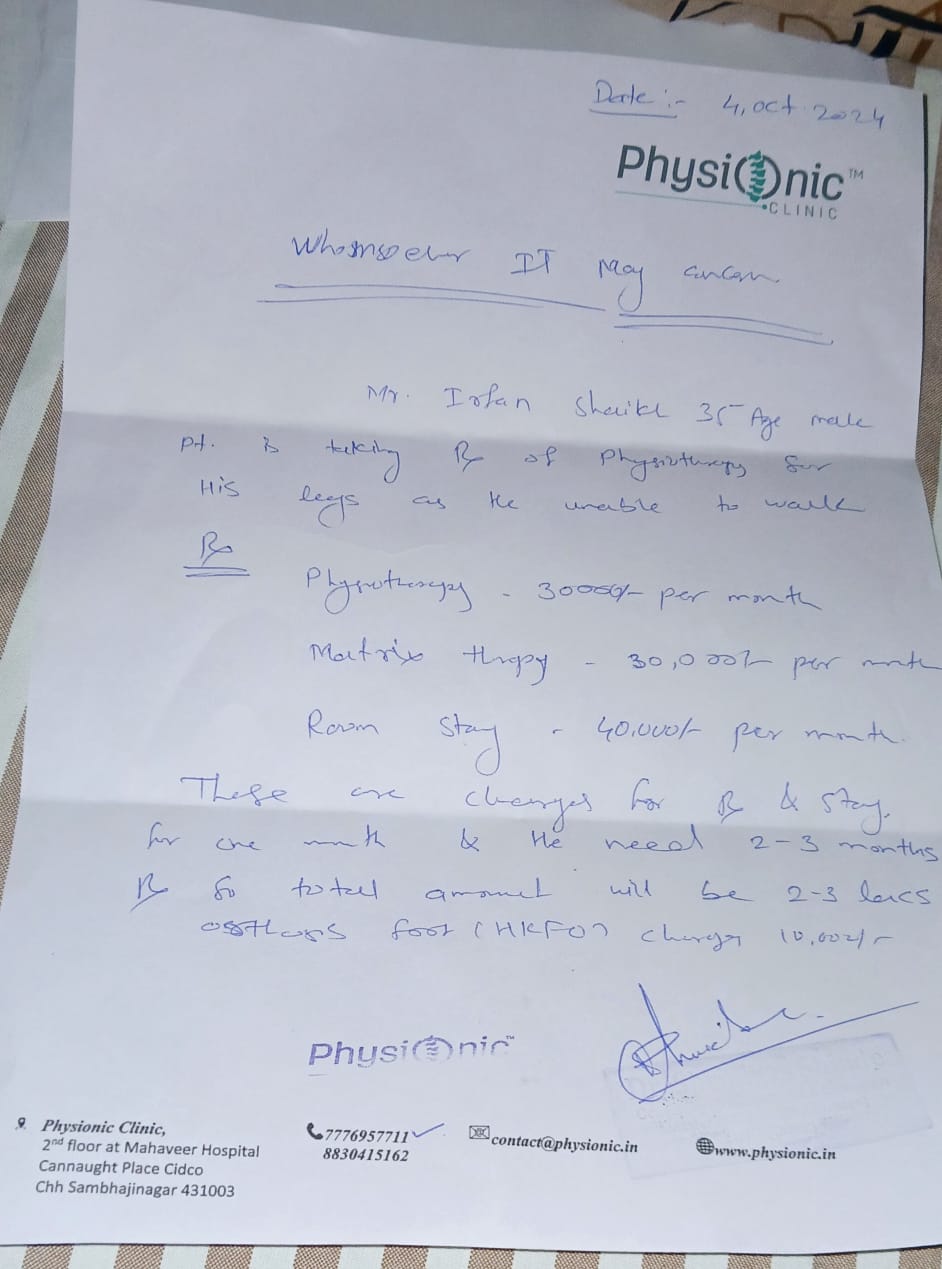 Date :- 4, oct. 2024
PhysiOnic™
CLINIC
Whomsoever IT May
Mr. Irfan Shaikh 35 Age male
pt. is taking Rx of Physiotherapy for
His legs as He unable to walk
Rx
Physiotherapy - 30000/- per month
Matrix thrapy - 30,000/- per month
Room stay - 40,000/- per month.
These are charges for Rx & stay.
for one month & He need 2-3 months
Rx So total amount will be 2-3 lacs
foot (HKFO) 10,000/-
PhysiOnic™
Physionic Clinic,
2nd floor at Mahaveer Hospital
Cannaught Place Cidco
Chh Sambhajinagar 431003
7776957711
8830415162
contact@physionic.in
www.physionic.in